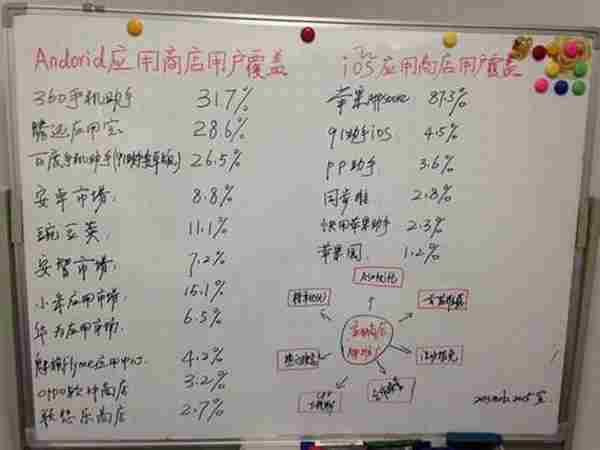 Andorid应用商店用户覆盖
360手机助手 31.7%
腾迅应用宝 28.6%
百度手机助手 26.5%
安卓市场. 8.8%
豌豆荚. 11.1%
安智市场. 7.2%
小米应用市场. 15.1%
华为应用市场. 6.5%
魅族flyme应用中心. 4.2%
oppo软件商店 3.2%
联想乐商店 2.7%
iOS应用商店用户覆盖
苹果Appstore 87.3%
91助手iOS 4.5%
PP助手 3.6%
同步推 2.8%
快用苹果助手 2.3%
苹果园. 1.2%
ASO优化
应用商店